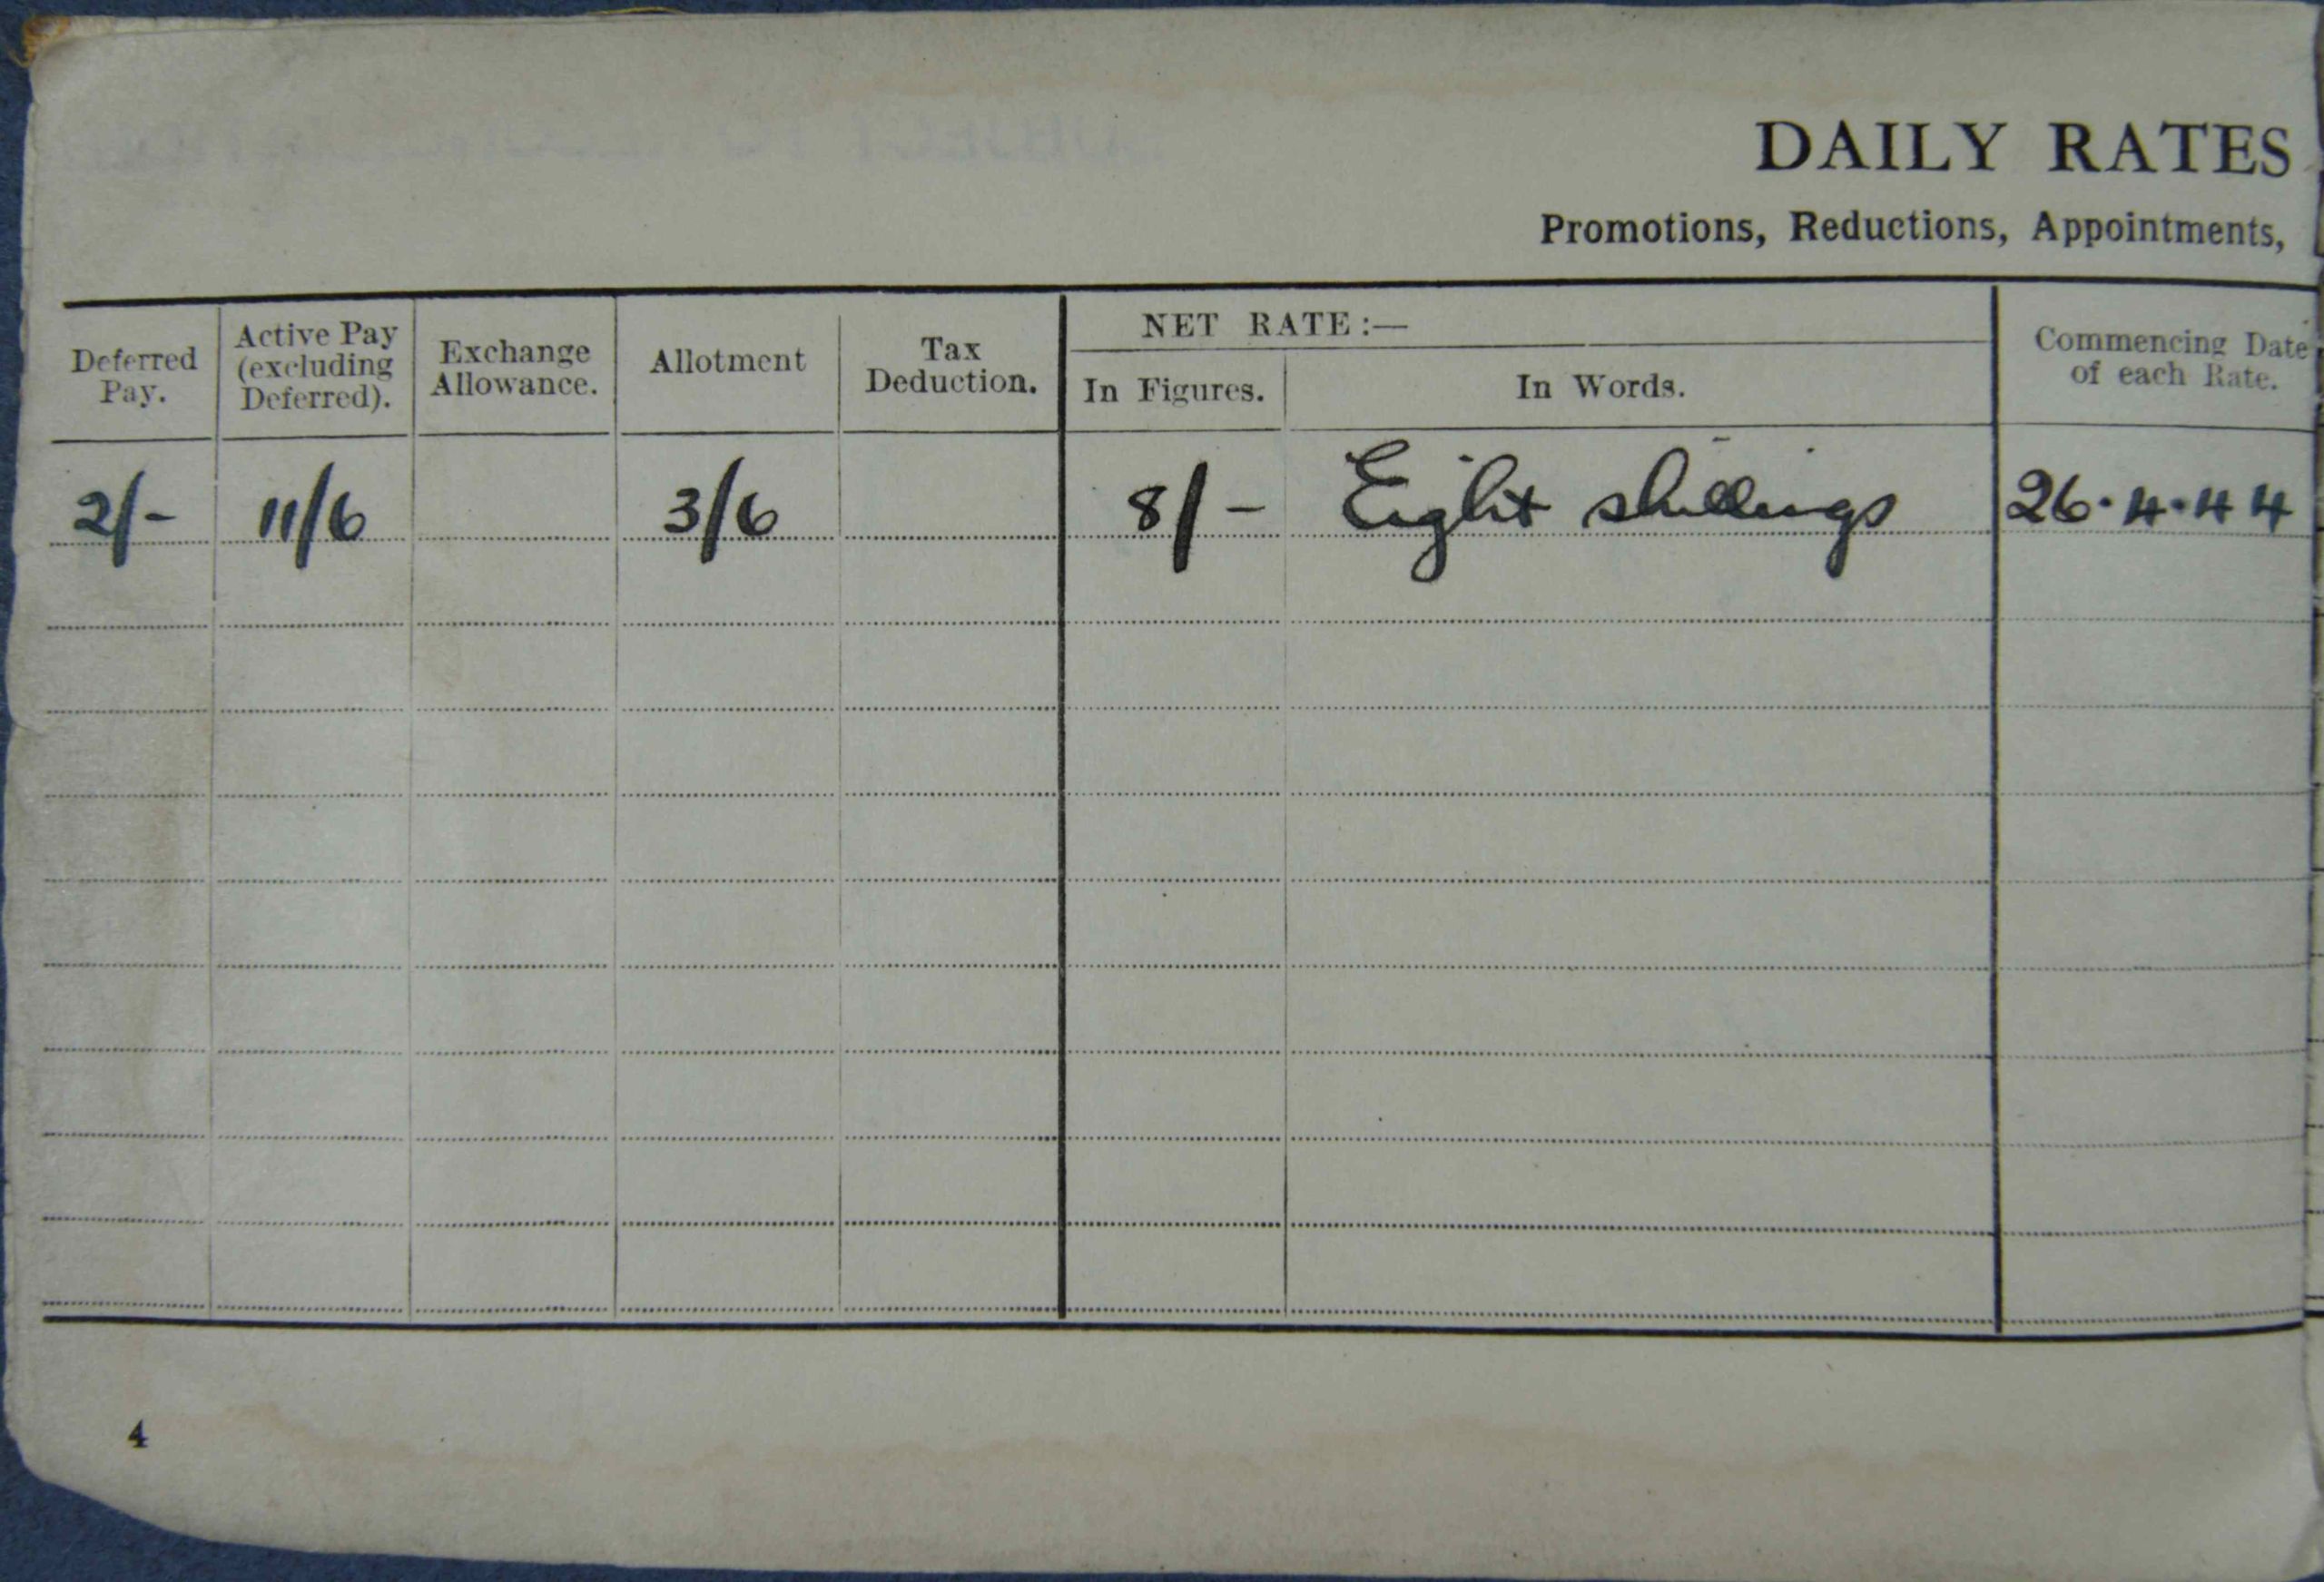 DAILY RATES
Promotions, Reductions, Appointments,
Deferred Pay.
Active Pay (excluding Deferred).
Exchange Allowance.
Allotment
Tax Deduction.
NET RATE :—
In Figures.
In Words.
Commencing Date of each Rate.
2/- 11/6 3/6 8/- Eight shillings 26·4·44
4